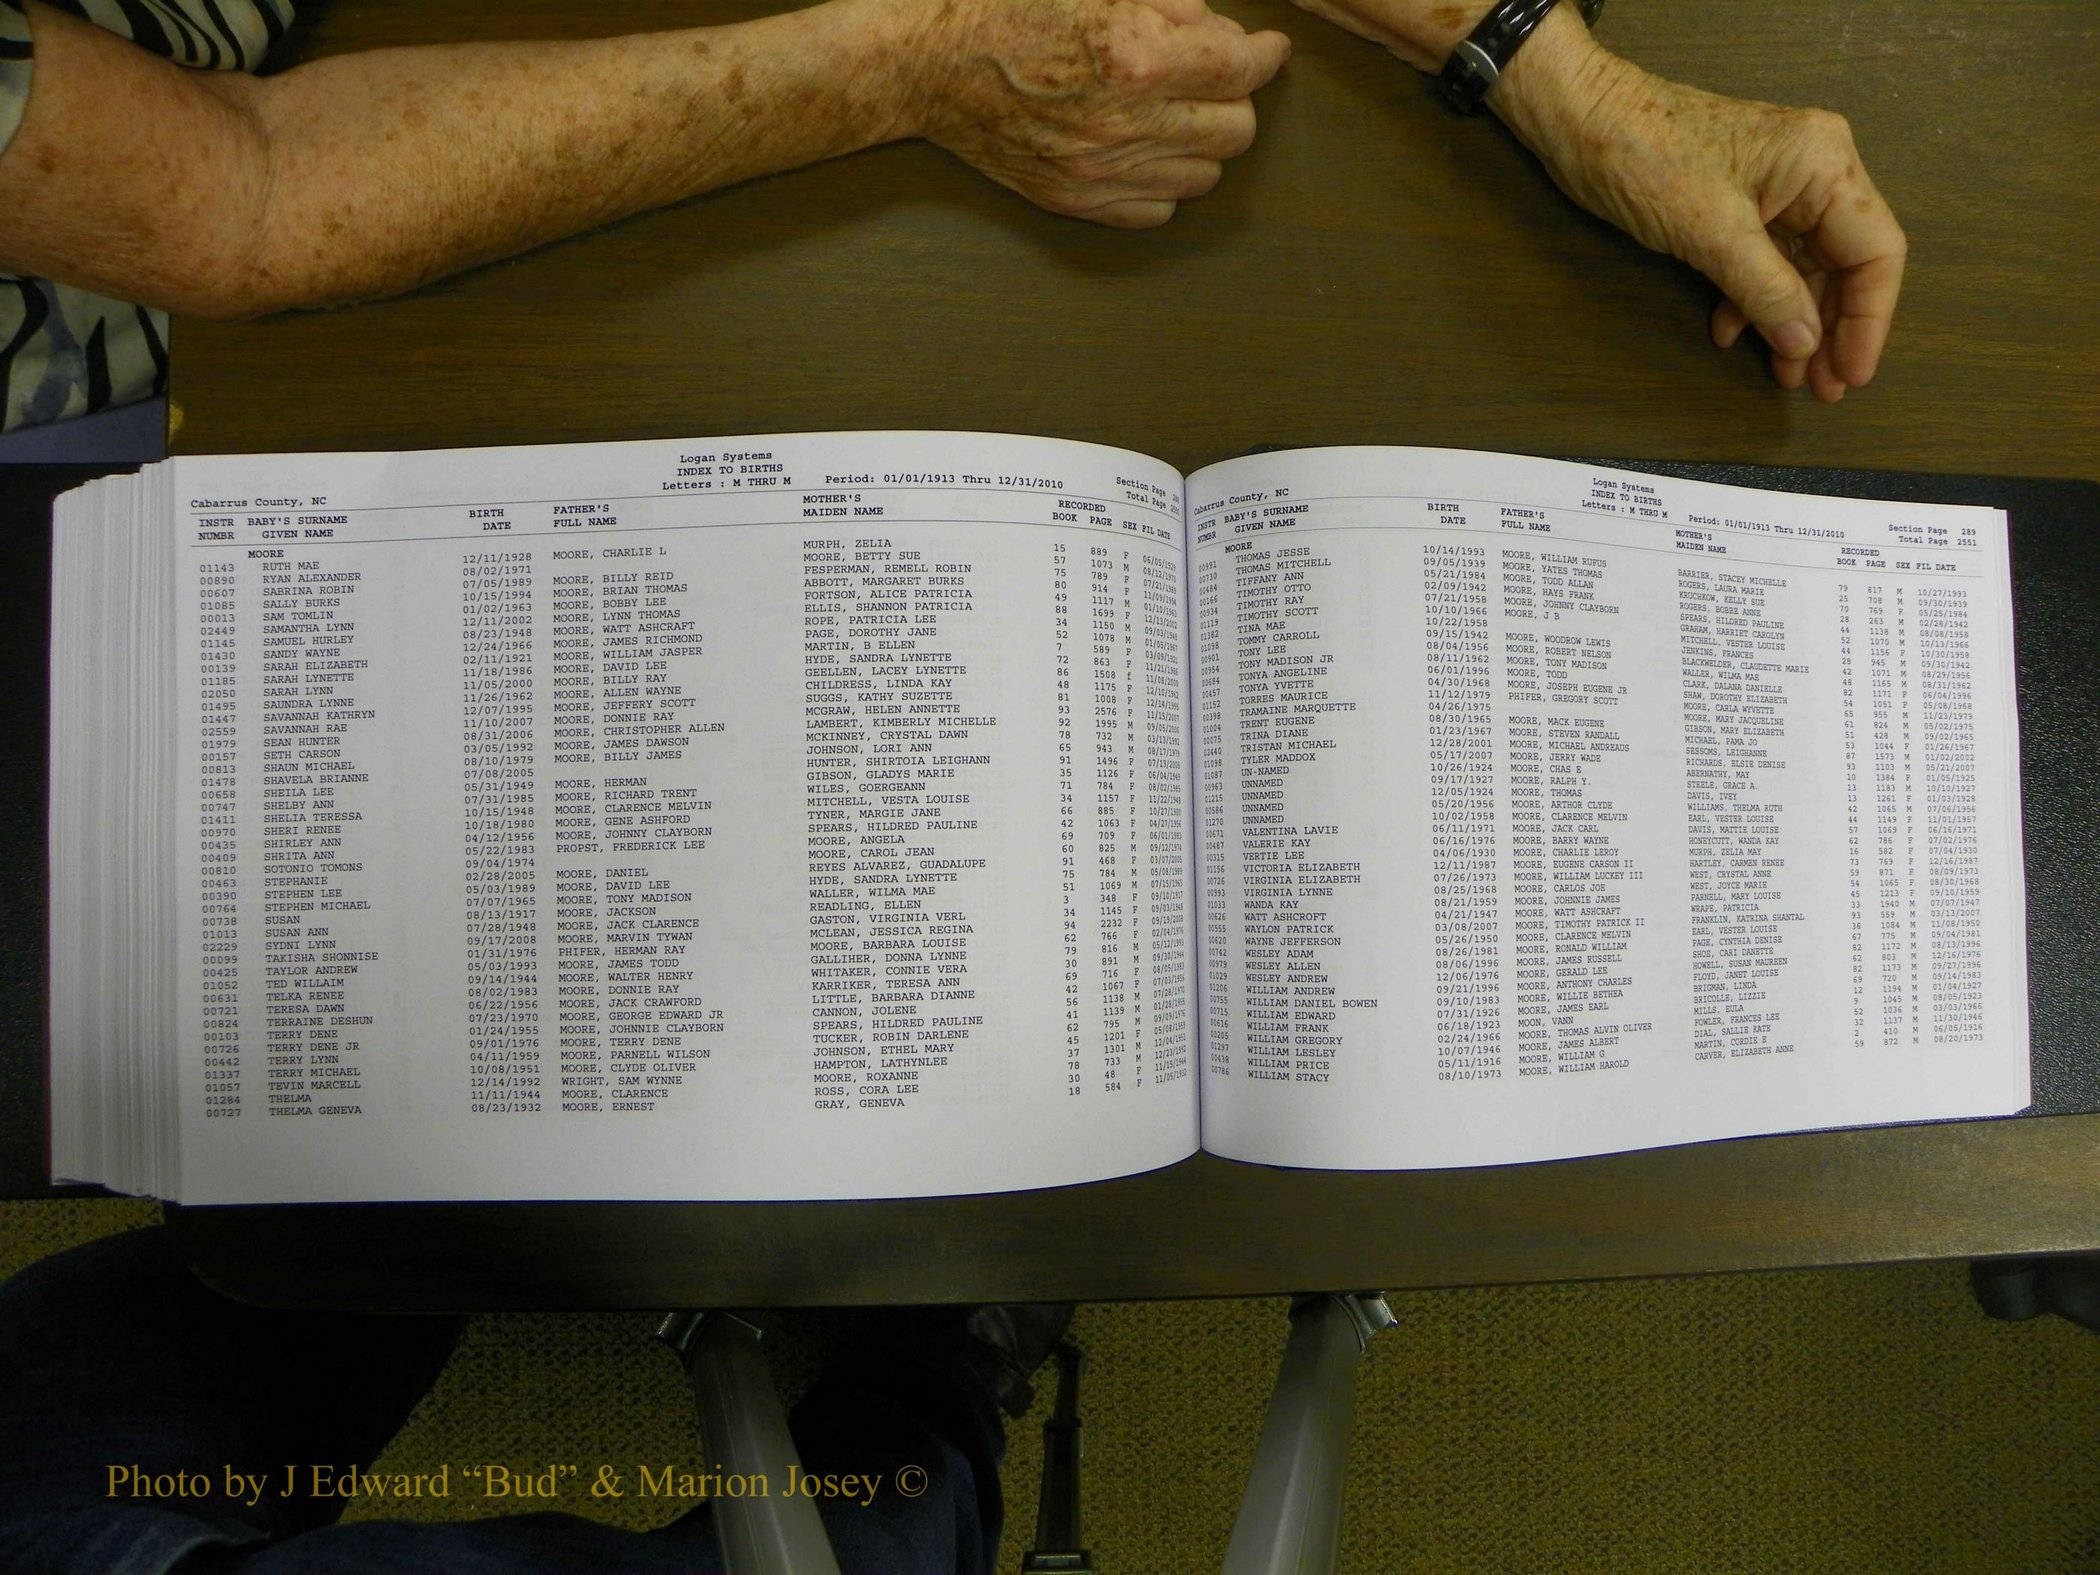 Logan Systems
INDEX TO BIRTHS
Letters : M THRU M Period: 01/01/1913 Thru 12/31/2010
Cabarrus County, NC Section Page 288
Total Page 2551
INSTR BABY'S SURNAME BIRTH FATHER'S MOTHER'S RECORDED
NUMBR GIVEN NAME DATE FULL NAME MAIDEN NAME BOOK PAGE SEX FIL DATE
MOORE
01143 RUTH MAE 12/11/1928 MOORE, CHARLIE L MURPH, ZELIA 15 889 F 06/05/1929
00890 RYAN ALEXANDER 08/02/1971 MOORE, BETTY SUE 57 1073 M 08/12/1971
00607 SABRINA ROBIN 07/05/1989 MOORE, BILLY REID FESPERMAN, REMELL ROBIN 75 789 F 07/21/1989
01085 SALLY BURKS 10/15/1994 MOORE, BRIAN THOMAS ABBOTT, MARGARET BURKS 80 914 F 11/09/1994
00013 SAM TOMLIN 01/02/1963 MOORE, BOBBY LEE FORTSON, ALICE PATRICIA 49 1117 M 01/10/1963
02449 SAMANTHA LYNN 12/11/2002 MOORE, LYNN THOMAS ELLIS, SHANNON PATRICIA 88 1699 F 12/13/2002
01145 SAMUEL HURLEY 08/23/1948 MOORE, WATT ASHCRAFT ROPE, PATRICIA LEE 34 1150 M 09/03/1948
01430 SANDY WAYNE 12/24/1966 MOORE, JAMES RICHMOND PAGE, DOROTHY JANE 52 1078 M 01/05/1967
00139 SARAH ELIZABETH 02/11/1921 MOORE, WILLIAM JASPER MARTIN, B ELLEN 7 589 F 03/09/1921
01185 SARAH LYNETTE 11/18/1986 MOORE, DAVID LEE HYDE, SANDRA LYNETTE 72 863 F 11/21/1986
02050 SARAH LYNN 11/05/2000 MOORE, BILLY RAY GEELLEN, LACEY LYNETTE 86 1508 f 11/08/2000
01495 SAUNDRA LYNNE 11/26/1962 MOORE, ALLEN WAYNE CHILDRESS, LINDA KAY 48 1175 F 12/10/1962
01447 SAVANNAH KATHRYN 12/07/1995 MOORE, JEFFERY SCOTT SUGGS, KATHY SUZETTE 81 1008 F 12/14/1995
02559 SAVANNAH RAE 11/10/2007 MOORE, DONNIE RAY MCGRAW, HELEN ANNETTE 93 2576 F 11/15/2007
01979 SEAN HUNTER 08/31/2006 MOORE, CHRISTOPHER ALLEN LAMBERT, KIMBERLY MICHELLE 92 1995 M 09/05/2006
00157 SETH CARSON 03/05/1992 MOORE, JAMES DAWSON MCKINNEY, CRYSTAL DAWN 78 732 M 03/13/1992
00813 SHAUN MICHAEL 08/10/1979 MOORE, BILLY JAMES JOHNSON, LORI ANN 65 943 M 08/17/1979
01478 SHAVELA BRIANNE 07/08/2005 HUNTER, SHIRTOIA LEIGHANN 91 1496 F 07/13/2005
00658 SHEILA LEE 05/31/1949 MOORE, HERMAN GIBSON, GLADYS MARIE 35 1126 F 06/04/1949
00747 SHELBY ANN 07/31/1985 MOORE, RICHARD TRENT WILES, GOERGEANN 71 784 F 08/02/1985
01411 SHELIA TERESSA 10/15/1948 MOORE, CLARENCE MELVIN MITCHELL, VESTA LOUISE 34 1157 F 11/22/1948
00970 SHERI RENEE 10/18/1980 MOORE, GENE ASHFORD TYNER, MARGIE JANE 66 885 F 10/27/1980
00435 SHIRLEY ANN 04/12/1956 MOORE, JOHNNY CLAYBORN SPEARS, HILDRED PAULINE 42 1063 F 04/27/1956
00409 SHRITA ANN 05/22/1983 PROPST, FREDERICK LEE MOORE, ANGELA 69 709 F 06/01/1983
00810 SOTONIO TOMONS 09/04/1974 MOORE, CAROL JEAN 60 825 M 09/12/1974
00463 STEPHANIE 02/28/2005 MOORE, DANIEL REYES ALVAREZ, GUADALUPE 91 468 F 03/07/2005
00390 STEPHEN LEE 05/03/1989 MOORE, DAVID LEE HYDE, SANDRA LYNETTE 75 784 M 05/08/1989
00764 STEPHEN MICHAEL 07/07/1965 MOORE, TONY MADISON WALLER, WILMA MAE 51 1069 M 07/15/1965
00738 SUSAN 08/13/1917 MOORE, JACKSON READLING, ELLEN 3 348 F 09/10/1917
01013 SUSAN ANN 07/28/1948 MOORE, JACK CLARENCE GASTON, VIRGINIA VERL 34 1145 F 09/03/1948
02229 SYDNI LYNN 09/17/2008 MOORE, MARVIN TYWAN MCLEAN, JESSICA REGINA 94 2232 F 09/19/2008
00099 TAKISHA SHONNISE 01/31/1976 PHIFER, HERMAN RAY MOORE, BARBARA LOUISE 62 766 F 02/04/1976
00425 TAYLOR ANDREW 05/03/1993 MOORE, JAMES TODD GALLIHER, DONNA LYNNE 79 816 M 05/12/1993
01052 TED WILLAIM 09/14/1944 MOORE, WALTER HENRY WHITAKER, CONNIE VERA 30 891 M 09/30/1944
00631 TELKA RENEE 08/02/1983 MOORE, DONNIE RAY KARRIKER, TERESA ANN 69 716 F 08/05/1983
00721 TERESA DAWN 06/22/1956 MOORE, JACK CRAWFORD LITTLE, BARBARA DIANNE 42 1067 F 07/03/1956
00824 TERRAINE DESHUN 07/23/1970 MOORE, GEORGE EDWARD JR CANNON, JOLENE 56 1138 M 07/28/1970
00103 TERRY DENE 01/24/1955 MOORE, JOHNNIE CLAYBORN SPEARS, HILDRED PAULINE 41 1139 M 01/28/1955
00726 TERRY DENE JR 09/01/1976 MOORE, TERRY DENE TUCKER, ROBIN DARLENE 62 795 M 09/09/1976
00442 TERRY LYNN 04/11/1959 MOORE, PARNELL WILSON JOHNSON, ETHEL MARY 45 1201 F 05/08/1959
01337 TERRY MICHAEL 10/08/1951 MOORE, CLYDE OLIVER HAMPTON, LATHYNLEE 37 1301 M 12/04/1951
01057 TEVIN MARCELL 12/14/1992 WRIGHT, SAM WYNNE MOORE, ROXANNE 78 733 M 12/23/1992
01284 THELMA 11/11/1944 MOORE, CLARENCE ROSS, CORA LEE 30 48 F 11/15/1944
00727 THELMA GENEVA 08/23/1932 MOORE, ERNEST GRAY, GENEVA 18 584 F 11/05/1932
Logan Systems
INDEX TO BIRTHS
Letters : M THRU M Period: 01/01/1913 Thru 12/31/2010
Cabarrus County, NC Section Page 289
Total Page 2551
INSTR BABY'S SURNAME BIRTH FATHER'S MOTHER'S RECORDED
NUMBR GIVEN NAME DATE FULL NAME MAIDEN NAME BOOK PAGE SEX FIL DATE
MOORE
00991 THOMAS JESSE 10/14/1993 MOORE, WILLIAM RUFUS BARRIER, STACEY MICHELLE 79 817 M 10/27/1993
00730 THOMAS MITCHELL 09/05/1939 MOORE, YATES THOMAS ROGERS, LAURA MARIE 25 708 M 09/30/1939
00484 TIFFANY ANN 05/21/1984 MOORE, TODD ALLAN KRUCHKOW, KELLY SUE 70 769 F 05/25/1984
00166 TIMOTHY OTTO 02/09/1942 MOORE, HAYS FRANK ROGERS, BOBBE ANNE 28 263 M 02/28/1942
00934 TIMOTHY RAY 07/21/1958 MOORE, JOHNNY CLAYBORN SPEARS, HILDRED PAULINE 44 1138 M 08/08/1958
01119 TIMOTHY SCOTT 10/10/1966 MOORE, J B GRAHAM, HARRIET CAROLYN 52 1070 M 10/13/1966
01382 TINA MAE 10/22/1958 MITCHELL, VESTER LOUISE 44 1156 F 10/30/1958
01098 TOMMY CARROLL 09/15/1942 MOORE, WOODROW LEWIS JENKINS, FRANCES 28 945 M 09/30/1942
00901 TONY LEE 08/04/1956 MOORE, ROBERT NELSON BLACKWELDER, CLAUDETTE MARIE 42 1071 M 08/29/1956
00954 TONY MADISON JR 08/11/1962 MOORE, TONY MADISON WALLER, WILMA MAE 48 1165 M 08/31/1962
00684 TONYA ANGELINE 06/01/1996 MOORE, TODD CLARK, DALANA DANIELLE 82 1171 F 06/04/1996
00457 TONYA YVETTE 04/30/1968 MOORE, JOSEPH EUGENE JR SHAW, DOROTHY ELIZABETH 54 1051 F 05/08/1968
01152 TORRES MAURICE 11/12/1979 PHIFER, GREGORY SCOTT MOORE, CARLA WYVETTE 65 955 M 11/23/1979
00398 TRAMAINE MARQUETTE 04/26/1975 MOORE, MARY JACQUELINE 61 824 M 05/02/1975
01004 TRENT EUGENE 08/30/1965 MOORE, MACK EUGENE GIBSON, MARY ELIZABETH 51 428 M 09/02/1965
00075 TRINA DIANE 01/23/1967 MOORE, STEVEN RANDALL MICHAEL, PAMA JO 53 1044 F 01/26/1967
02440 TRISTAN MICHAEL 12/28/2001 MOORE, MICHAEL ANDREAUS SESSOMS, LEIGHANNE 87 1573 M 01/02/2002
01098 TYLER MADDOX 05/17/2007 MOORE, JERRY WADE RICHARDS, ELSIE DENISE 93 1103 M 05/21/2007
01087 UN-NAMED 10/26/1924 MOORE, CHAS E ABERNATHY, MAY 10 1384 F 01/05/1925
00963 UNNAMED 09/17/1927 MOORE, RALPH Y. STEELE, GRACE A. 13 1183 M 10/10/1927
01215 UNNAMED 12/05/1924 MOORE, THOMAS DAVIS, IVEY 13 1261 F 01/03/1928
00586 UNNAMED 05/20/1956 MOORE, ARTHOR CLYDE WILLIAMS, THELMA RUTH 42 1065 M 07/06/1956
01270 UNNAMED 10/02/1958 MOORE, CLARENCE MELVIN EARL, VESTER LOUISE 44 1149 F 11/01/1957
00671 VALENTINA LAVIE 06/11/1971 MOORE, JACK CARL DAVIS, MATTIE LOUISE 57 1069 F 06/16/1971
00487 VALERIE KAY 06/16/1976 MOORE, BARRY WAYNE HONEYCUTT, WANDA KAY 62 786 F 07/02/1976
00315 VERTIE LEE 04/06/1930 MOORE, CHARLIE LEROY MURPH, ZELIA MAY 16 582 F 07/04/1930
01156 VICTORIA ELIZABETH 12/11/1987 MOORE, EUGENE CARSON II HARTLEY, CARMEN RENEE 73 769 F 12/16/1987
00726 VIRGINIA ELIZABETH 07/26/1973 MOORE, WILLIAM LUCKEY III WEST, CRYSTAL ANNE 59 871 F 08/09/1973
00993 VIRGINIA LYNNE 08/25/1968 MOORE, CARLOS JOE WEST, JOYCE MARIE 54 1065 F 08/30/1968
01033 WANDA KAY 08/21/1959 MOORE, JOHNNIE JAMES PARNELL, MARY LOUISE 45 1213 F 09/10/1959
00626 WATT ASHCROFT 04/21/1947 MOORE, WATT ASHCRAFT WRAPE, PATRICIA 33 1940 M 07/07/1947
00555 WAYLON PATRICK 03/08/2007 MOORE, TIMOTHY PATRICK II FRANKLIN, KATRINA SHANTAL 93 559 M 03/13/2007
00620 WAYNE JEFFERSON 05/26/1950 MOORE, CLARENCE MELVIN EARL, VESTER LOUISE 36 1084 M 11/08/1950
00742 WESLEY ADAM 08/26/1981 MOORE, RONALD WILLIAM PAGE, CYNTHIA DENISE 67 775 M 09/04/1981
00979 WESLEY ALLEN 08/06/1996 MOORE, JAMES RUSSELL SHOE, CARI DANETTE 82 1172 M 08/13/1996
01029 WESLEY ANDREW 12/06/1976 MOORE, GERALD LEE HOWELL, SUSAN MAUREEN 62 803 M 12/16/1976
01206 WILLIAM ANDREW 09/21/1996 MOORE, ANTHONY CHARLES FLOYD, JANET LOUISE 82 1173 M 09/27/1996
00755 WILLIAM DANIEL BOWEN 09/10/1983 MOORE, WILLIE BETHEA BRIGMAN, LINDA 69 720 M 09/14/1983
00715 WILLIAM EDWARD 07/31/1926 MOORE, JAMES EARL BRICOLLE, LIZZIE 12 1194 M 01/04/1927
00616 WILLIAM FRANK 06/18/1923 MOON, VANN MILLS, EULA 9 1045 M 08/05/1923
00205 WILLIAM GREGORY 02/24/1966 MOORE, THOMAS ALVIN OLIVER FOWLER, FRANCES LEE 52 1036 M 03/03/1966
01297 WILLIAM LESLEY 10/07/1946 MOORE, JAMES ALBERT DIAL, SALLIE KATE 32 1137 M 11/30/1946
00438 WILLIAM PRICE 05/11/1916 MOORE, WILLIAM G MARTIN, CORDIE E 2 410 M 06/05/1916
00786 WILLIAM STACY 08/10/1973 MOORE, WILLIAM HAROLD CARVER, ELIZABETH ANNE 59 872 M 08/20/1973
Photo by J Edward “Bud” & Marion Josey ©